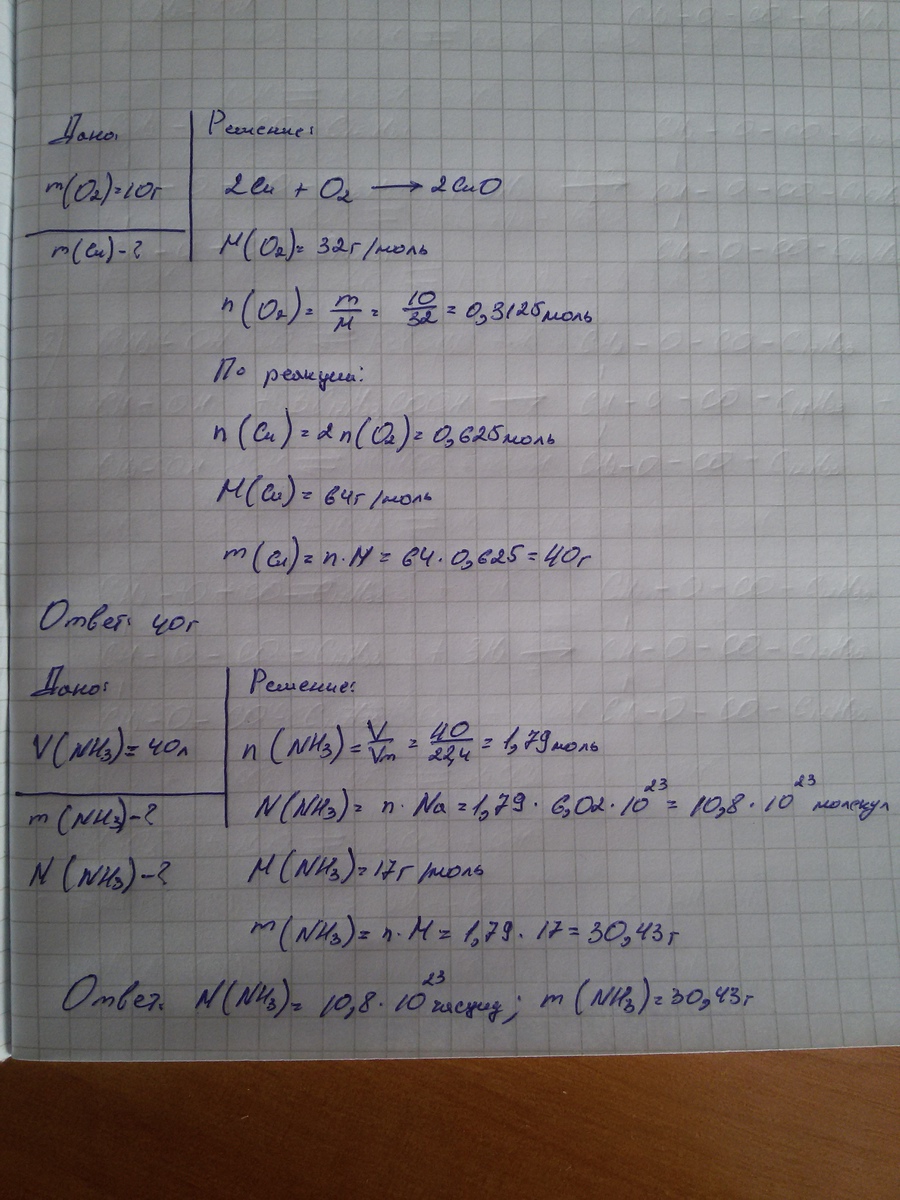 Дано:
m(O₂)=10г
m(Cu)-?
Решение:
2Cu + O₂ ⟶ 2CuO
M(O₂)= 32г/моль
n(O₂)= m/M = 10/32 = 0,3125моль
По реакции:
n(Cu)=2n(O₂)=0,625моль
M(Cu)= 64г/моль
m(Cu)=n·M=64·0,625=40г
Ответ: 40г
Дано:
V(NH₃)=40л
m(NH₃)-?
N(NH₃)-?
Решение:
n(NH₃)=V/Vm = 40/22,4 = 1,79моль
N(NH₃)= n·Na=1,79·6,02·10²³=10,8·10²³ молекул
M(NH₃)=17г/моль
m(NH₃)=n·M=1,79·17=30,43г
Ответ: N(NH₃)=10,8·10²³частиц; m(NH₃)=30,43г